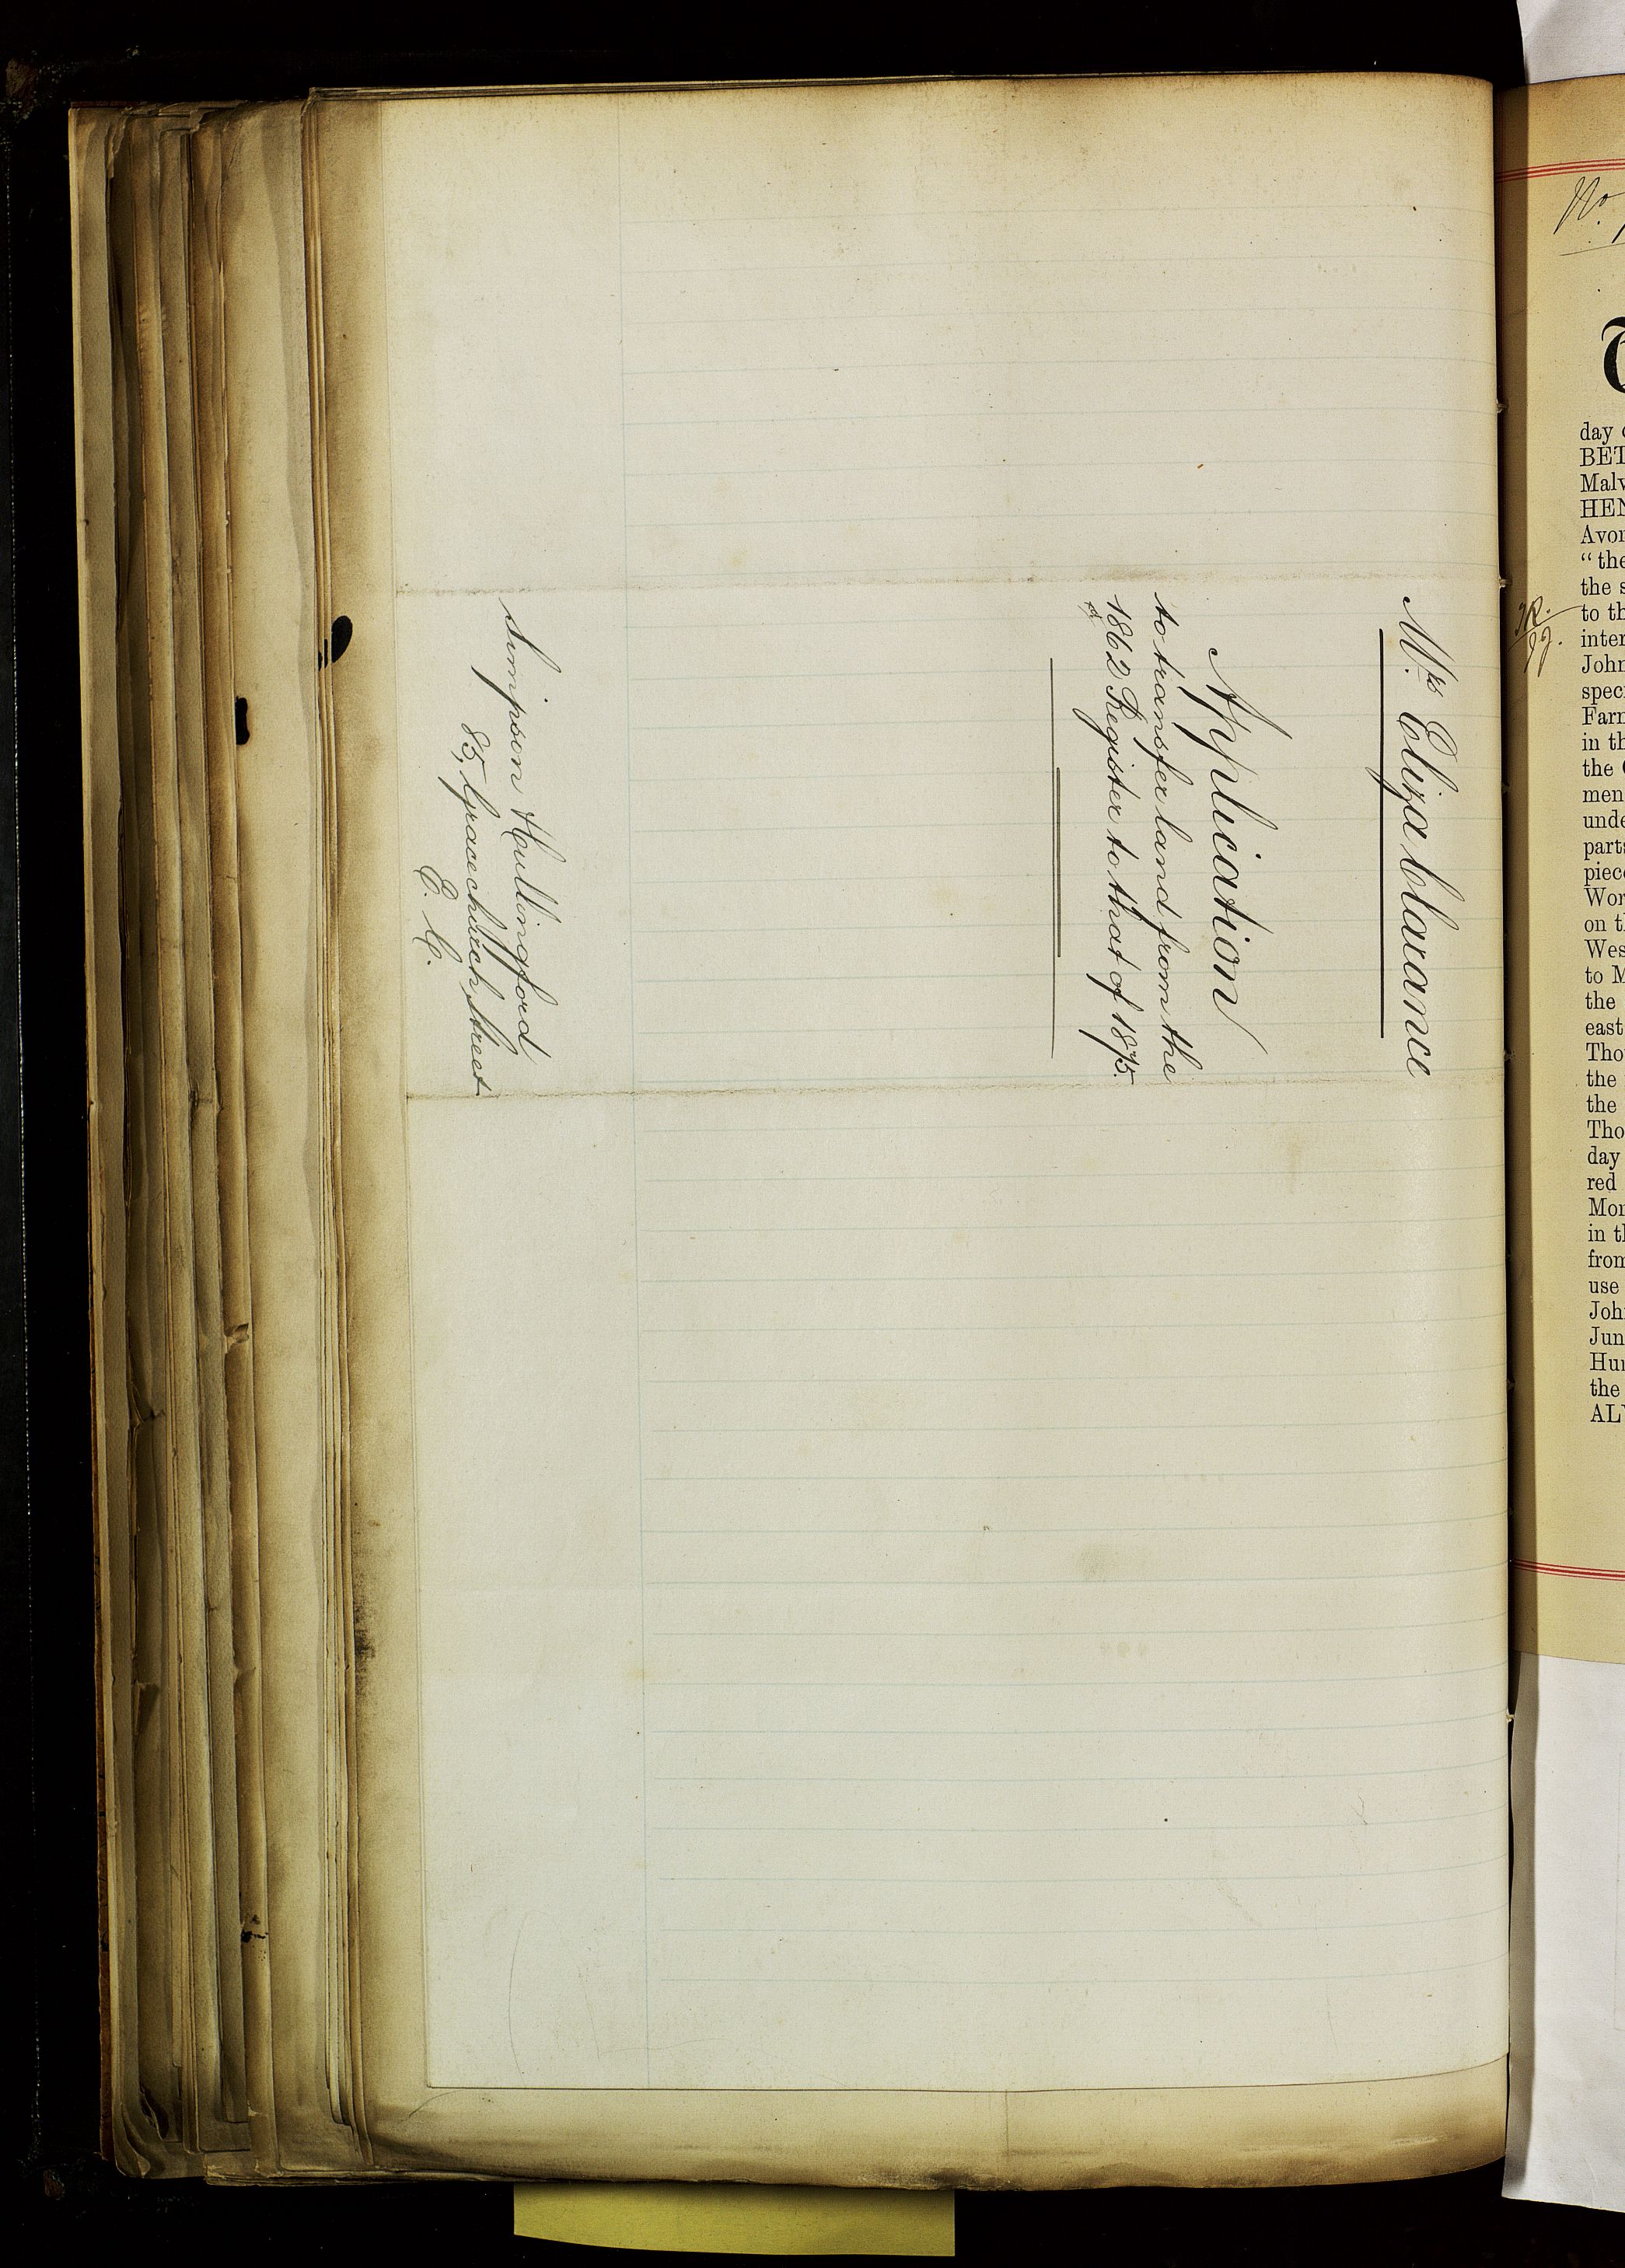 Mrs. Eliza Clarance
Application
to transfer land from the
1862 Register to that of 1875.
Simpson Hullingford
85, Gracechurch Street
E. C.
No.
day
BET
Malv
HEN
Avon
"the
the s
to th
inter
John
speci
Farm
in th
the
men
unde
parts
piece
Wor
on t
Wes
to M
the
east
Tho
the
the
Tho
day
red
Mon
in t
from
use
Joh
Jun
Hun
the